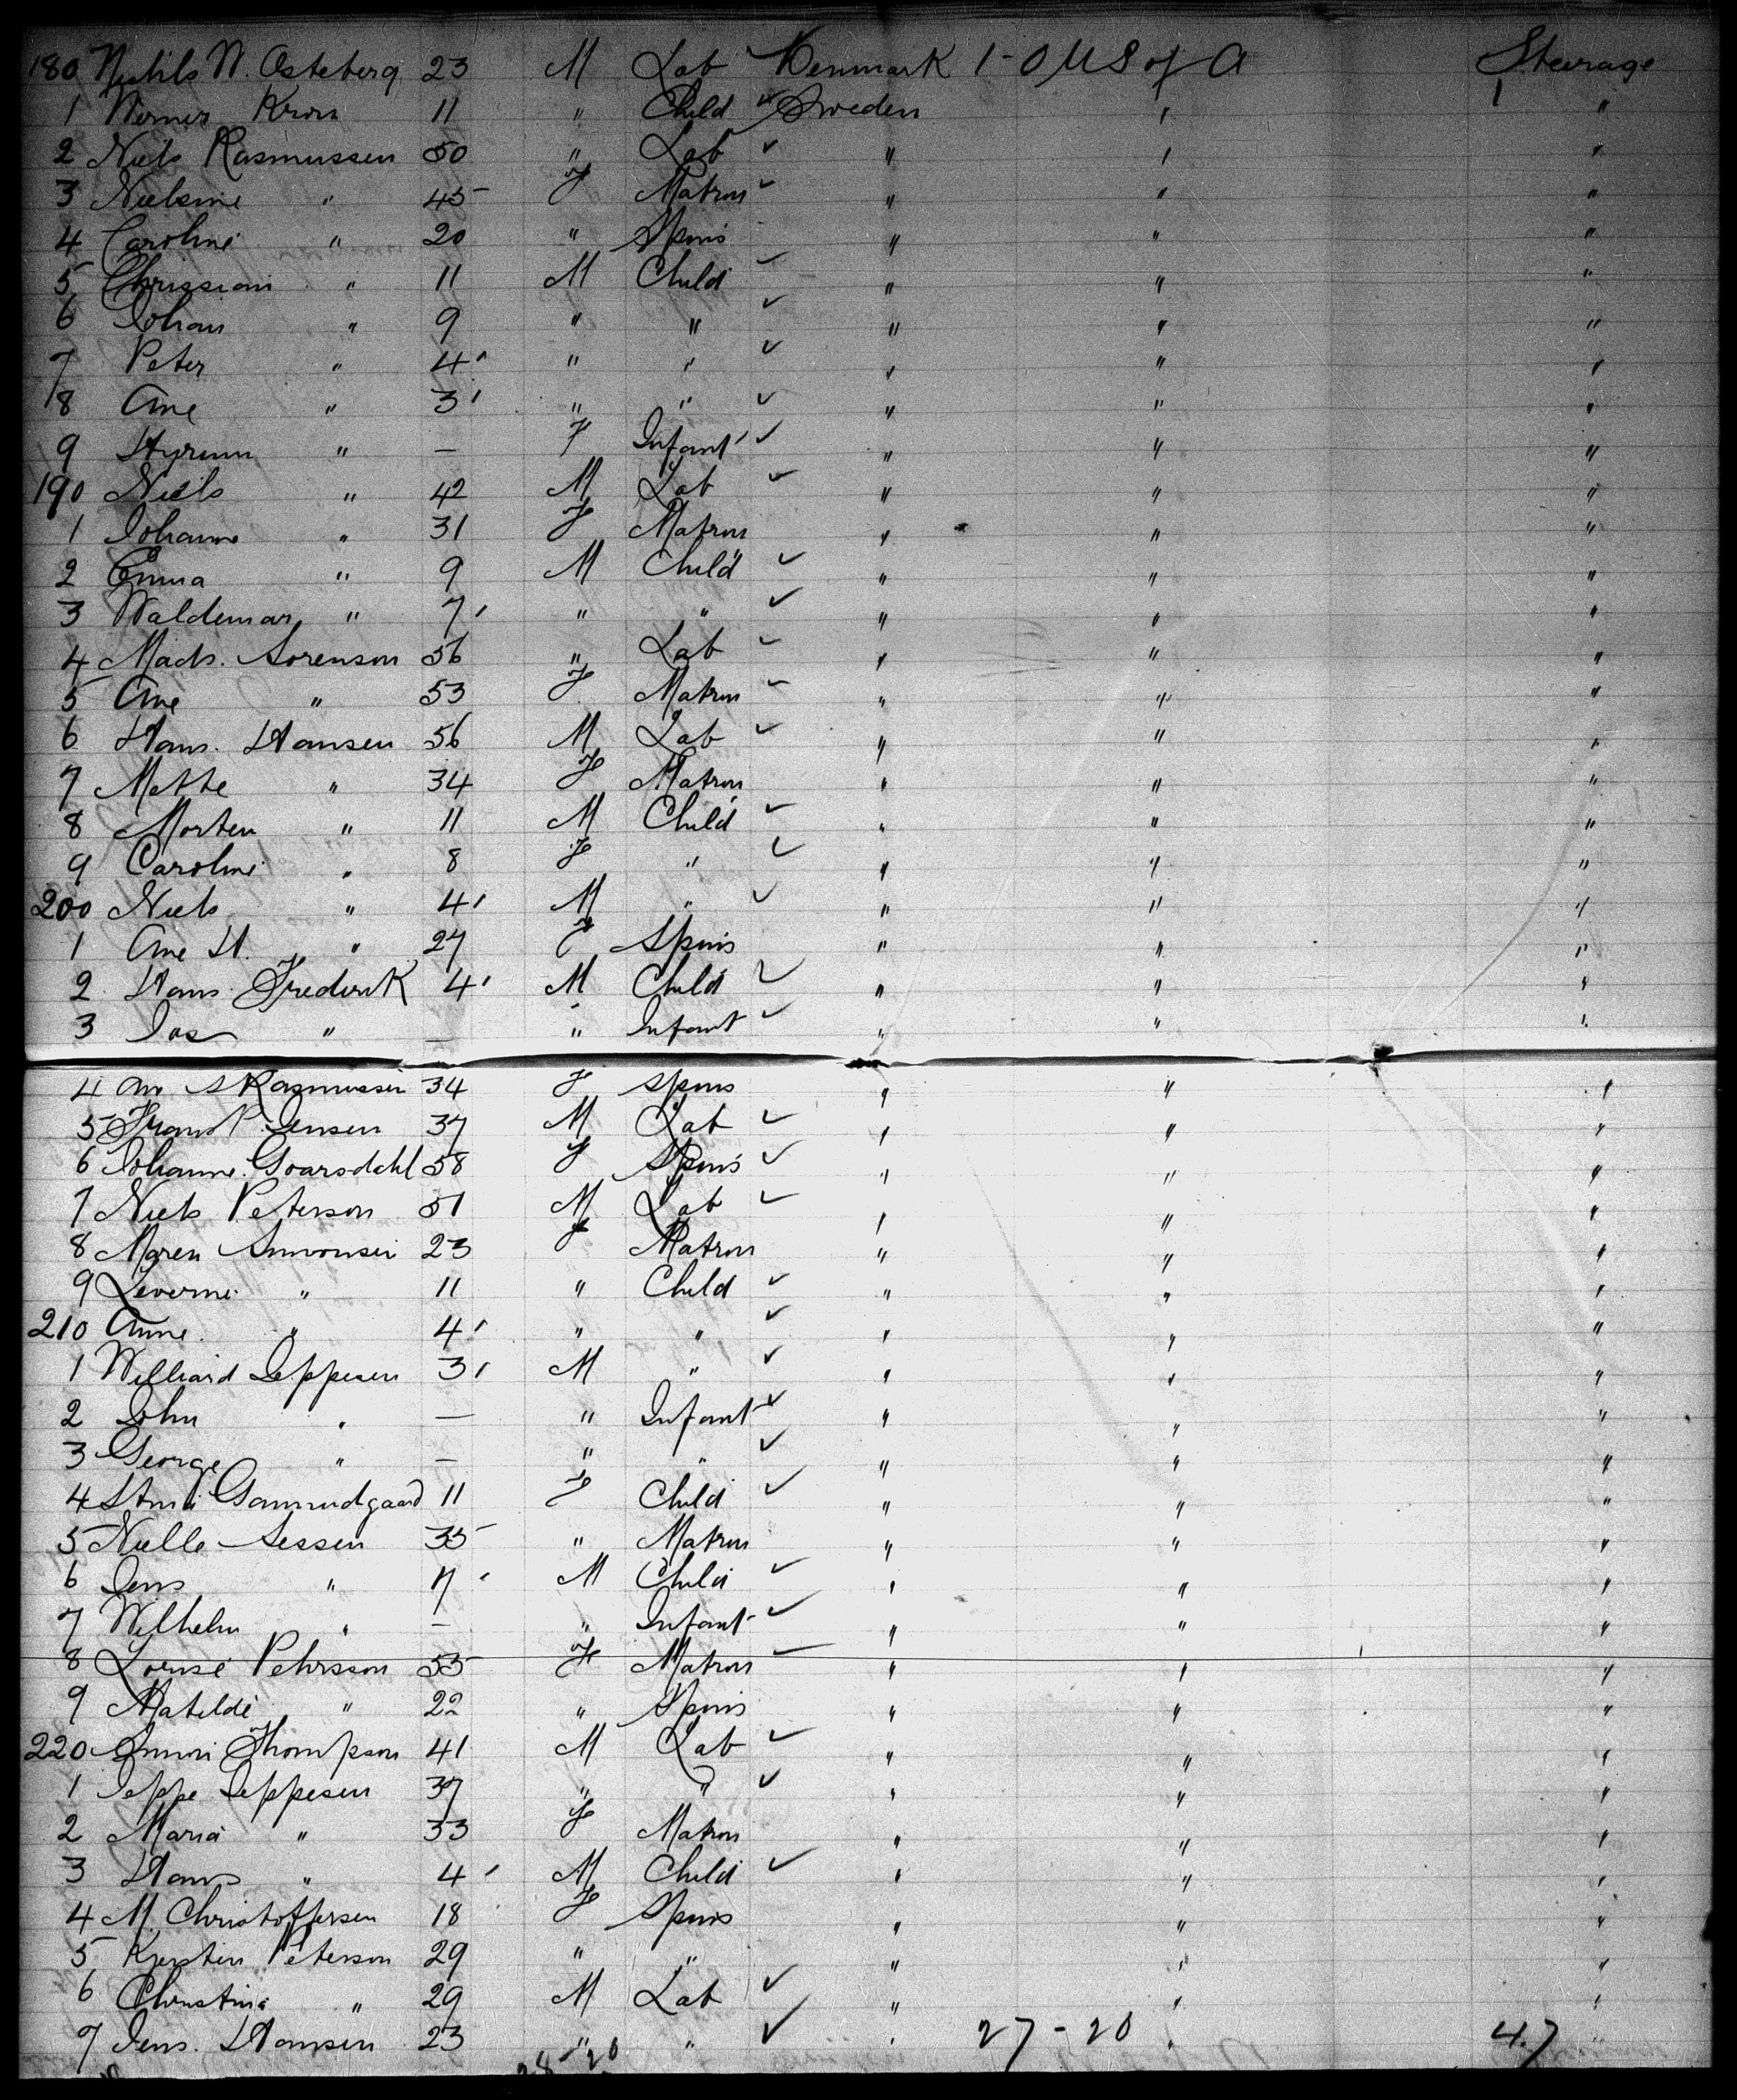 180 Nichls N. Osteberg 23 M Lab Denmark 1-0 US of A Steerage
1 Werner Kron 11 " Child ✓ Sweden " "
2 Niels Rasmussen 50 " Lab ✓ " " "
3 Nielsine " 45 F Matron ✓ " " "
4 Caroline " 20 " Spins " " "
5 Chrissian " 11 M Child ✓ " " "
6 Johan " 9 " " ✓ " " "
7 Peter " 4 " " ✓ " " "
8 Ane " 3 " " ✓ " " "
9 Hyrum " — F Infant ✓ " " "
190 Niels " 42 M Lab ✓ " " "
1 Johanne " 31 F Matron " " "
2 Emma " 9 M Child ✓ " " "
3 Waldemar " 7 " " ✓ " " "
4 Mads. Sorenson 56 " Lab ✓ " " "
5 Ane " 53 F Matron ✓ " " "
6 Hans. Hansen 56 M Lab ✓ " " "
7 Mette " 34 F Matron " " "
8 Morten " 11 M Child ✓ " " "
9 Caroline " 8 F " ✓ " " "
200 Niels " 4 M " ✓ " " "
1 Ane H. " 27 F Spins " " "
2 Hans Frederik 4 M Child ✓ " " "
3 Jas " — " Infant ✓ " " "
4 Ane S Rasmussen 34 F Spins " " "
5 Frans P. Jensen 37 M Lab ✓ " " "
6 Johanne Goarsdahl 58 F Spins ✓ " " "
7 Niels Peterson 51 M Lab ✓ " " "
8 Maren Simonsen 23 F Matron " " "
9 Leverne " 11 " Child ✓ " " "
210 Anne " 4 " " ✓ " " "
1 Williard Jeppesen 3 M " ✓ " " "
2 John " — " Infant ✓ " " "
3 George " — " " ✓ " " "
4 Gammdgaard 11 F Child ✓ " " "
5 Nielle Sessen 35 " Matron " " "
6 Jens " 7 M Child ✓ " " "
7 Wilhelm " — " Infant ✓ " " "
8 Louise Pehrsson 55 F Matron ✓ " " "
9 Matilde " 22 " Spins " " "
220 Thompson 41 M Lab ✓ " " "
1 Jeppe Jeppesen 37 " " ✓ " " "
2 Maria " 33 F Matron " " "
3 Hans " 4 M Child ✓ " " "
4 M. Christoffersen 18 F Spins " " "
5 Kjerstin Peterson 29 " " " " "
6 Christine " 29 M Lab ✓ " " "
7 Jens. Hansen 23 " " ✓ " 27-20 " 47 "
28-20